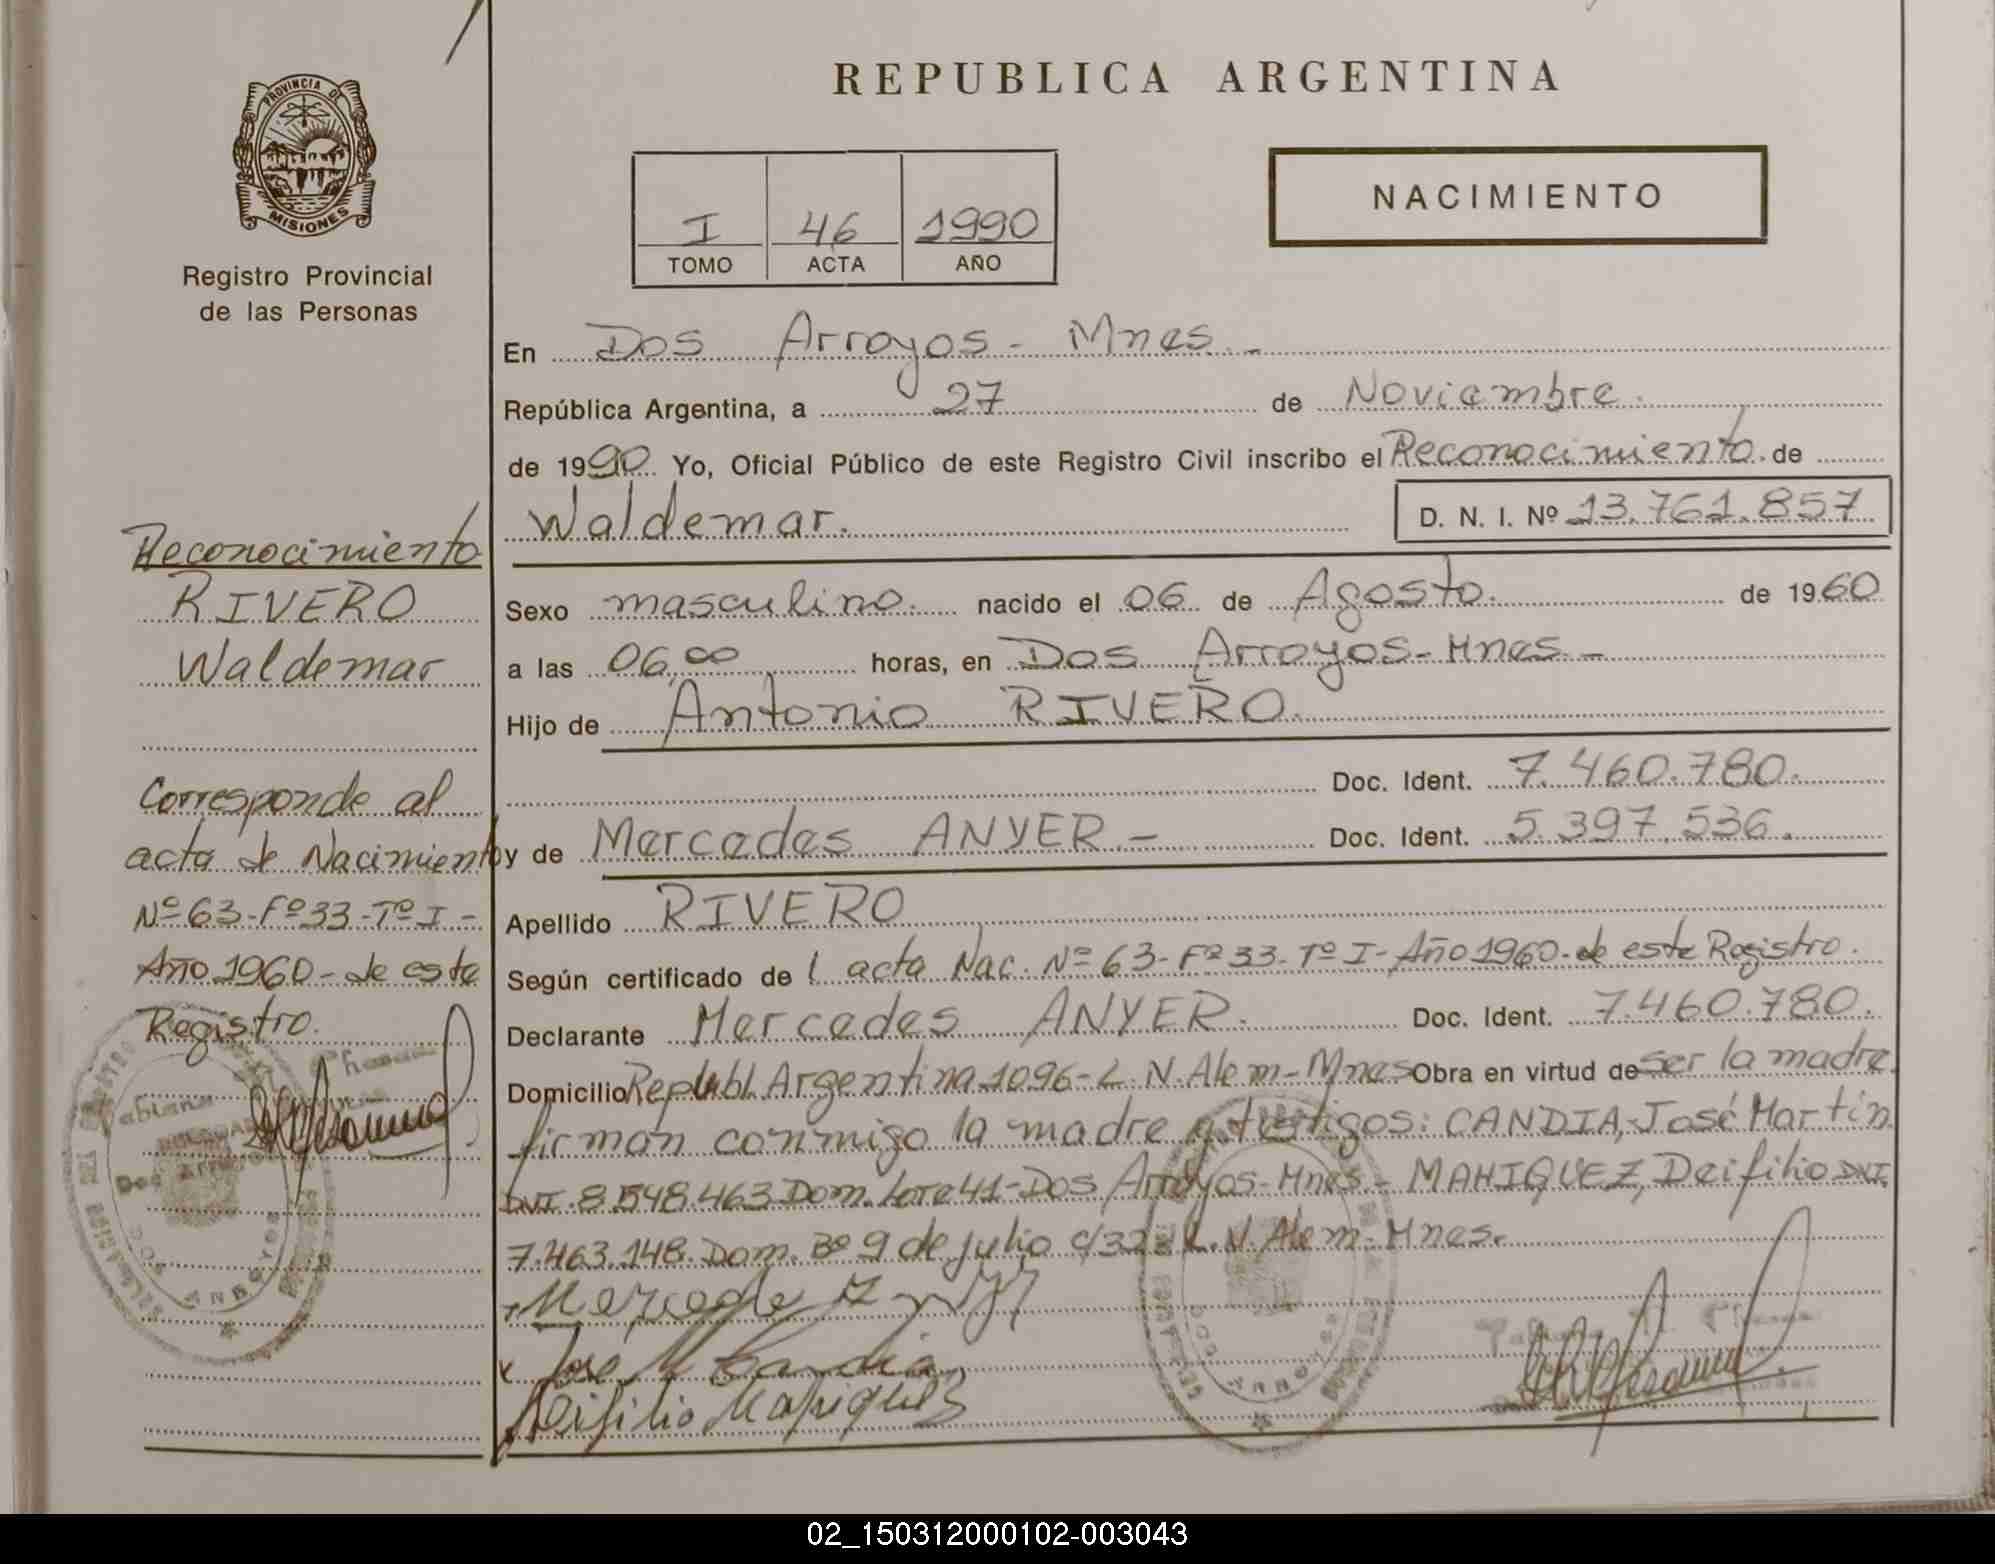 PROVINCIA DE
MISIONES
Registro Provincial
de las Personas
Reconocimiento
RIVERO
Waldemar
Corresponde al
acta de Nacimiento
Nº 63-Fº 33-Tº I-
Año 1960- de este
Registro.
REPUBLICA ARGENTINA
I 46 1990
TOMO ACTA AÑO
NACIMIENTO
En Dos Arroyos - Mnes -
República Argentina, a 27 de Noviembre.
de 1990 Yo, Oficial Público de este Registro Civil inscribo el Reconocimiento de
Waldemar. D. N. I. Nº 13.761.857
Sexo masculino. nacido el 06 de Agosto. de 1960
a las 06,00 horas, en Dos Arroyos-Mnes -
Hijo de Antonio RIVERO.
Doc. Ident. 7.460.780.
y de Mercedes ANYER - Doc. Ident. 5.397.536.
Apellido RIVERO
Según certificado de l acta Nac. Nº 63-Fº 33-Tº I-Año 1960-de este Registro.
Declarante Mercedes ANYER. Doc. Ident. 7.460.780.
Domicilio Republ Argentina 1096-L.N.Alem-Mnes Obra en virtud de ser la madre.
firman conmigo la madre y testigos: CANDIA, José Martín
DNI.8.548.463 Dom. Lote 41-Dos Arroyos-Mnes.- MAHIQUEZ, Deifilio DNI.
7.463.148. Dom. Bº 9 de julio c/32 L.N.Alem-Mnes.
Mercede
Jose M Candia
Deifilio
02_150312000102-003043